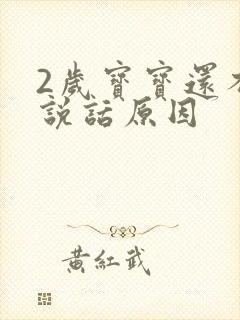 2歲寶寶還不
說話原因
黃紅武